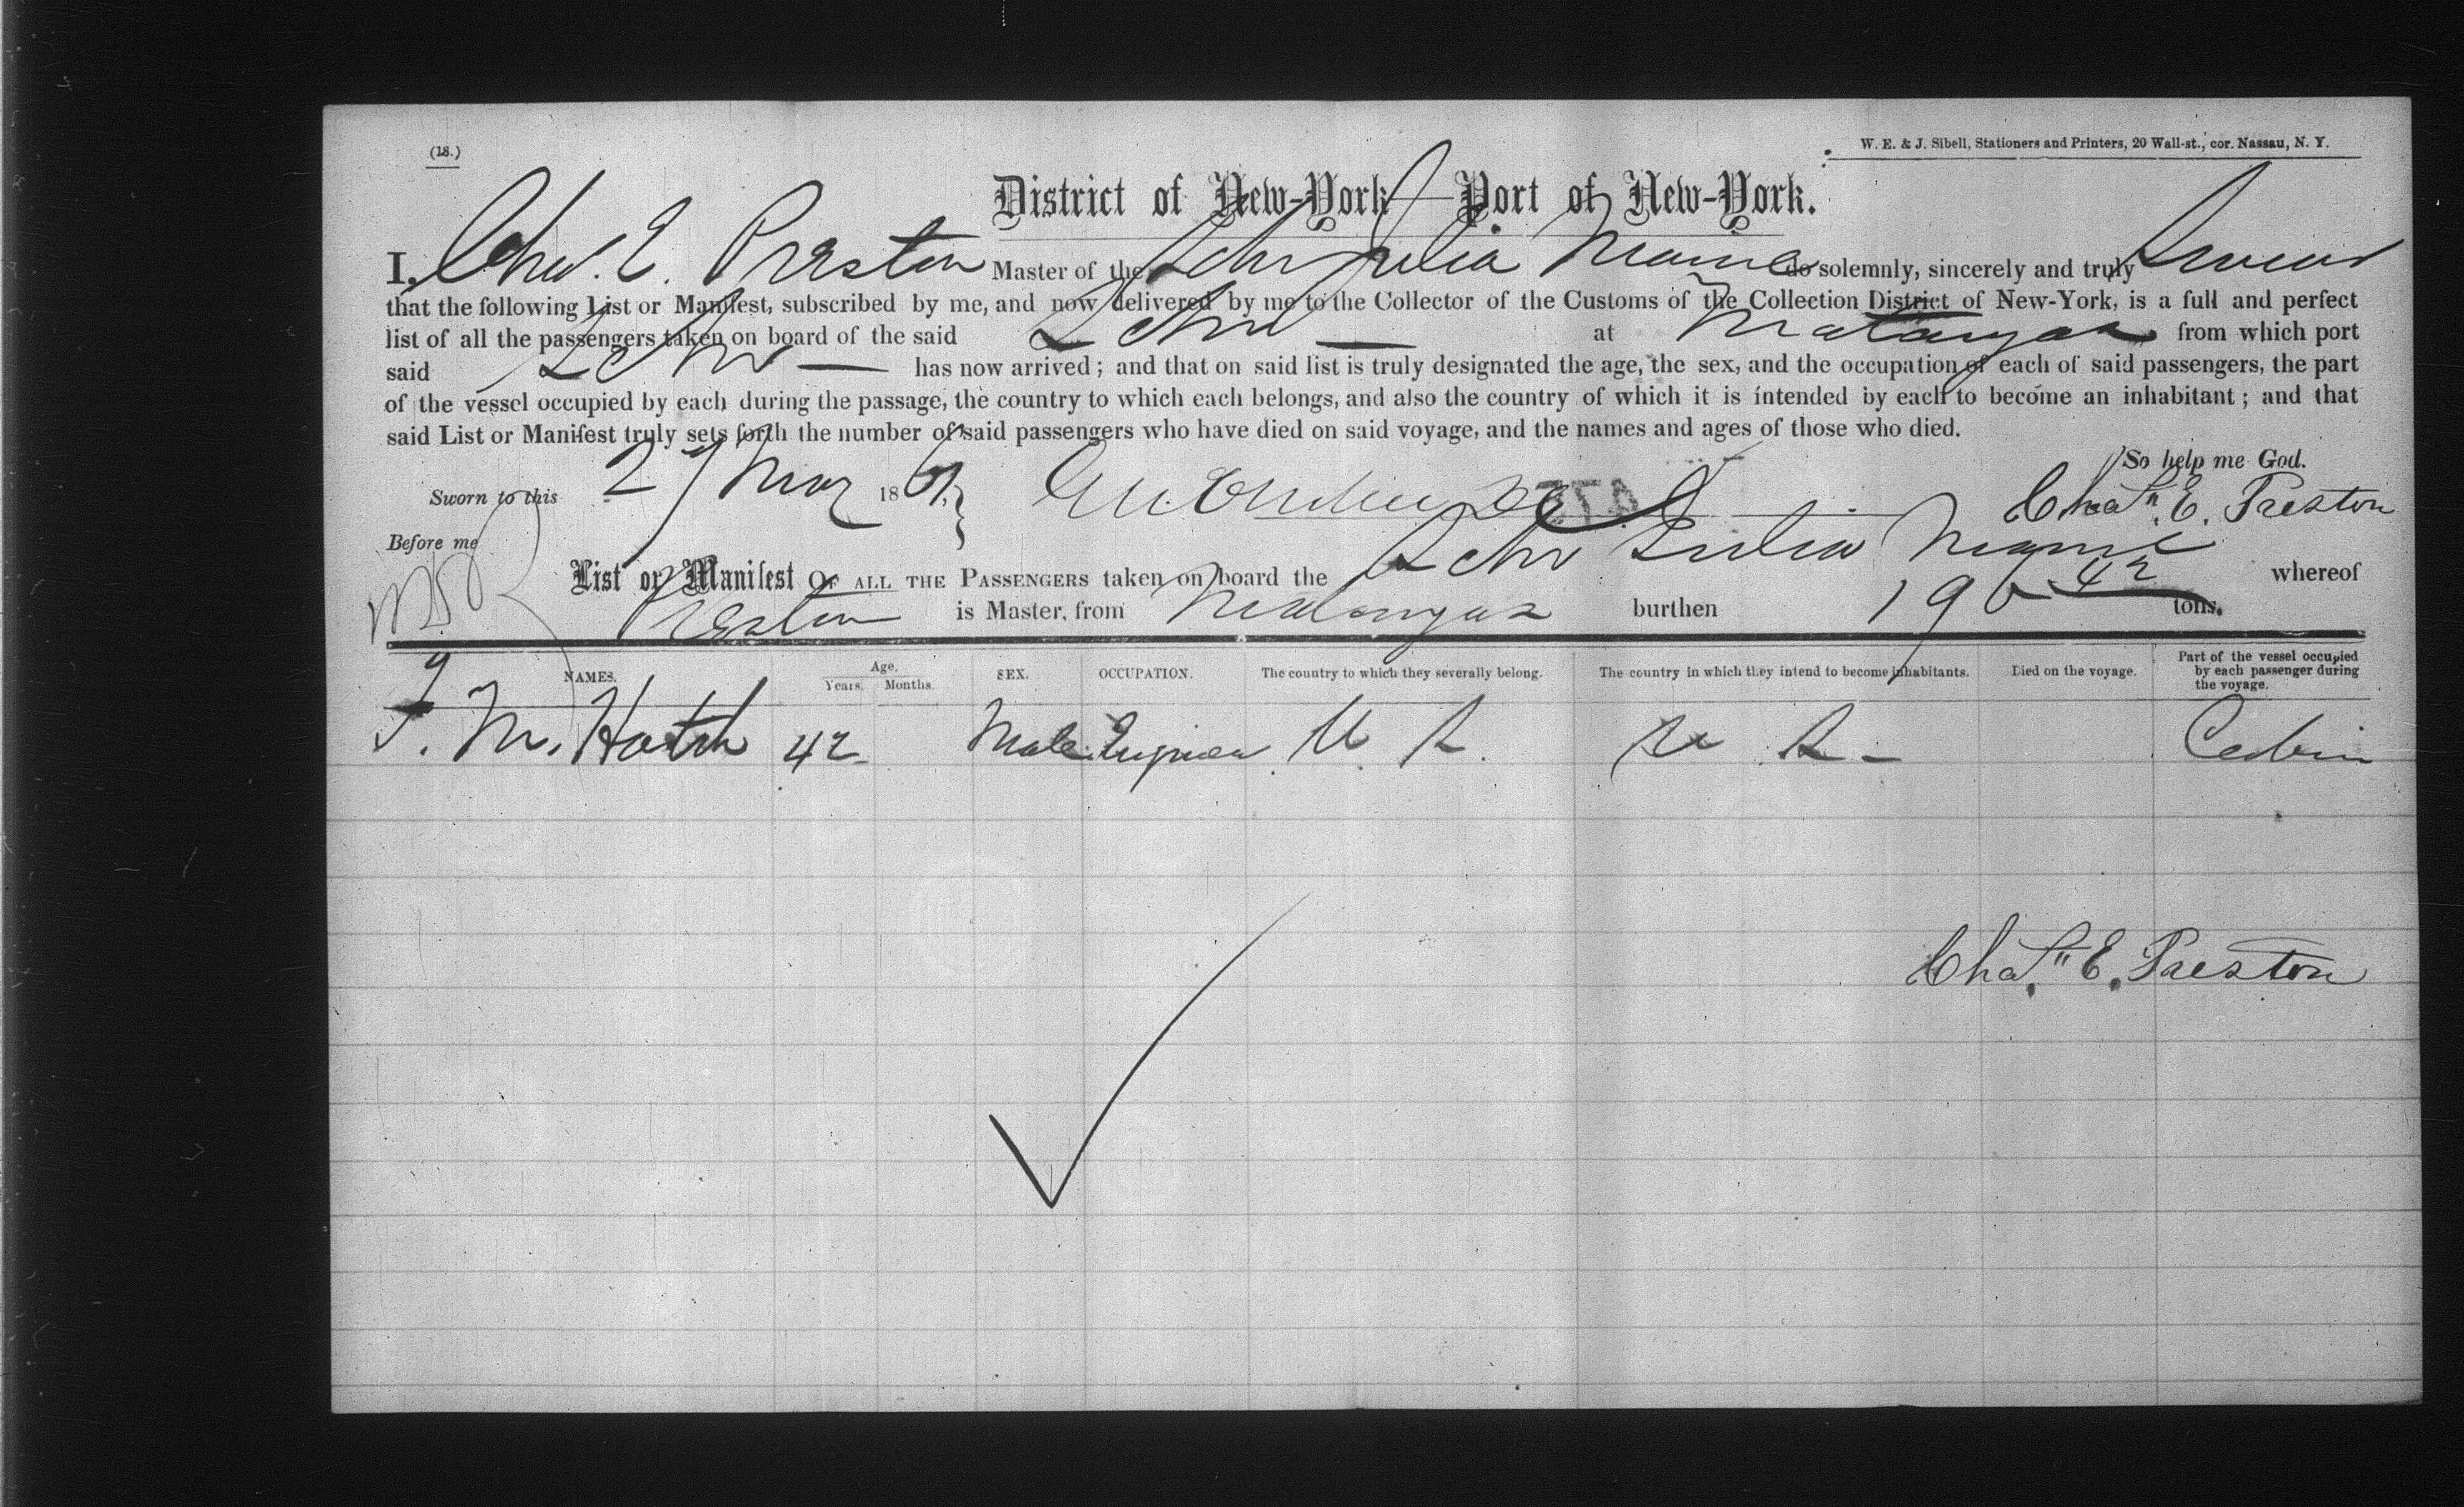 (18.)
W. E. & J. Sibell, Stationers and Printers, 20 Wall-st., cor. Nassau, N. Y.
District of New-York—Port of New-York.
I, Chas. E. Preston Master of the Schr Julia do solemnly, sincerely and truly Swear
that the following List or Manifest, subscribed by me, and now delivered by me to the Collector of the Customs of the Collection District of New-York, is a full and perfect
list of all the passengers taken on board of the said Schr at Matanzas from which port
said Schr has now arrived; and that on said list is truly designated the age, the sex, and the occupation of each of said passengers, the part
of the vessel occupied by each during the passage, the country to which each belongs, and also the country of which it is intended by each to become an inhabitant; and that
said List or Manifest truly sets forth the number of said passengers who have died on said voyage, and the names and ages of those who died.
So help me God.
Sworn to this 27 Mar 18
Chas. E. Preston
Before me
List or Manifest OF ALL THE PASSENGERS taken on board the Schr Julia whereof
Preston is Master, from Matanzas burthen tons.
NAMES. Age. Years. Months. SEX. OCCUPATION. The country to which they severally belong. The country in which they intend to become inhabitants. Died on the voyage. Part of the vessel occupied by each passenger during the voyage.
M. Hatch 42 Male Engineer U S U S Cabin
Chas. E. Preston